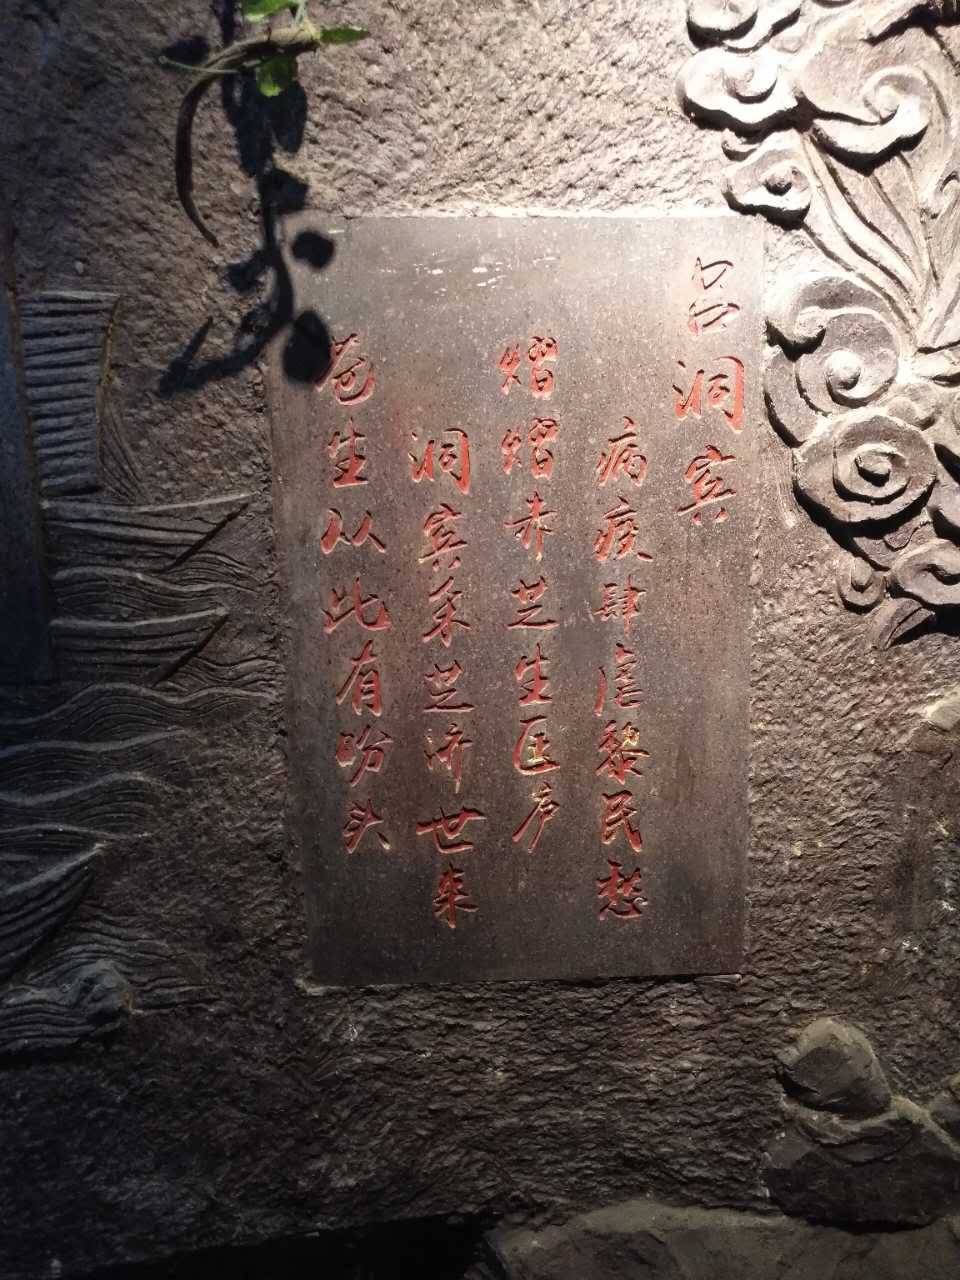 吕洞宾
病疫肆虐黎民愁
熠熠赤芝生匡庐
洞宾采芝济世来
苍生从此有盼头